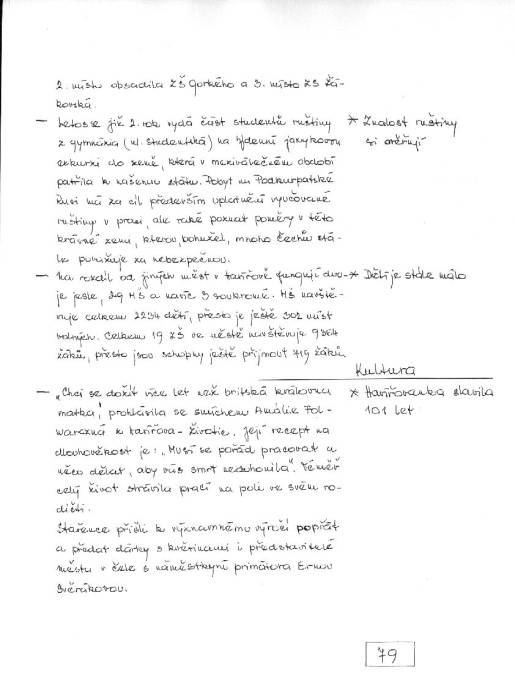 2. místo obsadila ZŠ Gorkého a 3. místo ZŠ Žá-
kovská.
– Letos se již 2. rok vydá část studentů ruštiny
* Znalost ruštiny
z gymnázia (ul. Studentská) na týdenní jazykovou
si ověřují
exkurzi do země, která v meziválečném období
patřila k našemu státu. Pobyt na Podkarpatské
Rusi má za cíl především uplatnění vyučované
ruštiny v praxi, ale také poznat poměry v této
krásné zemi, kterou, bohužel, mnoho Čechů stá-
le považuje za nebezpečnou.
– Na rozdíl od jiných měst v Havířově fungují dvo-
* Dětí je stále málo
je jesle, 29 MŠ a navíc 3 soukromé. MŠ navště-
vuje celkem 2234 dětí, přesto je ještě 302 míst
volných. Celkem 19 ZŠ ve městě navštěvuje 9364
žáků, přesto jsou schopny ještě přijmout 719 žáků.
Kultura
– „Chci se dožít více let než britská královna
* Havířovanka slavila
matka", prohlásila se smíchem Amálie Fol-
101 let
warczná z Havířova-Životic. Její recept na
dlouhověkost je: „Musí se pořád pracovat a
něco dělat, aby vás smrt nedohonila". Téměř
celý život strávila prací na poli ve svém ro-
dišti.
Stařence přišli k významnému výročí popřát
a předat dárky s květinami i představitelé
města v čele s náměstkyní primátora Ernou
Svěrákovou.
79